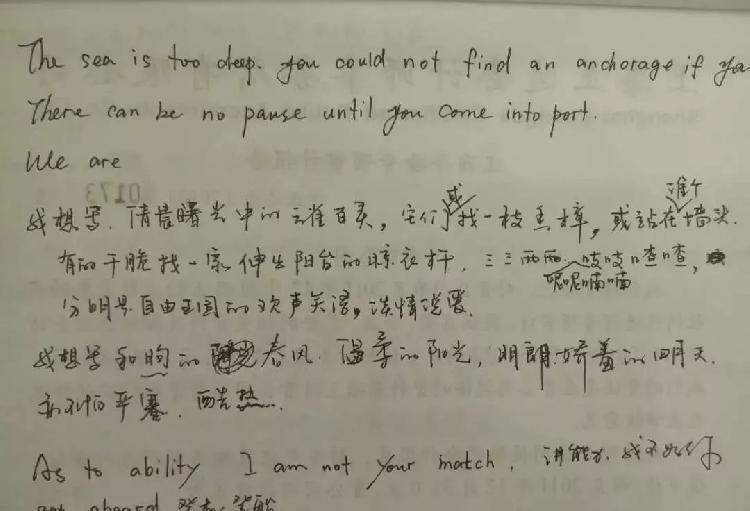 The sea is too deep. you could not find an anchorage if you
There can be no pause until you come into port.
We are
我想写. 清晨曙光中的云雀百灵, 它们或找一枝香樟, 或站在谁个墙头.
有的干脆找一家伸出阳台的晾衣杆, 三三两两, 吱吱喳喳,
呢呢喃喃
分明是自由王国的欢声笑语, 谈情说爱.
我想写和煦的春风. 温柔的阳光, 明朗娇羞的四月天.
严寒. 酷热.
As to ability I am not your match, 讲能力, 我不如你
get aboard
0173